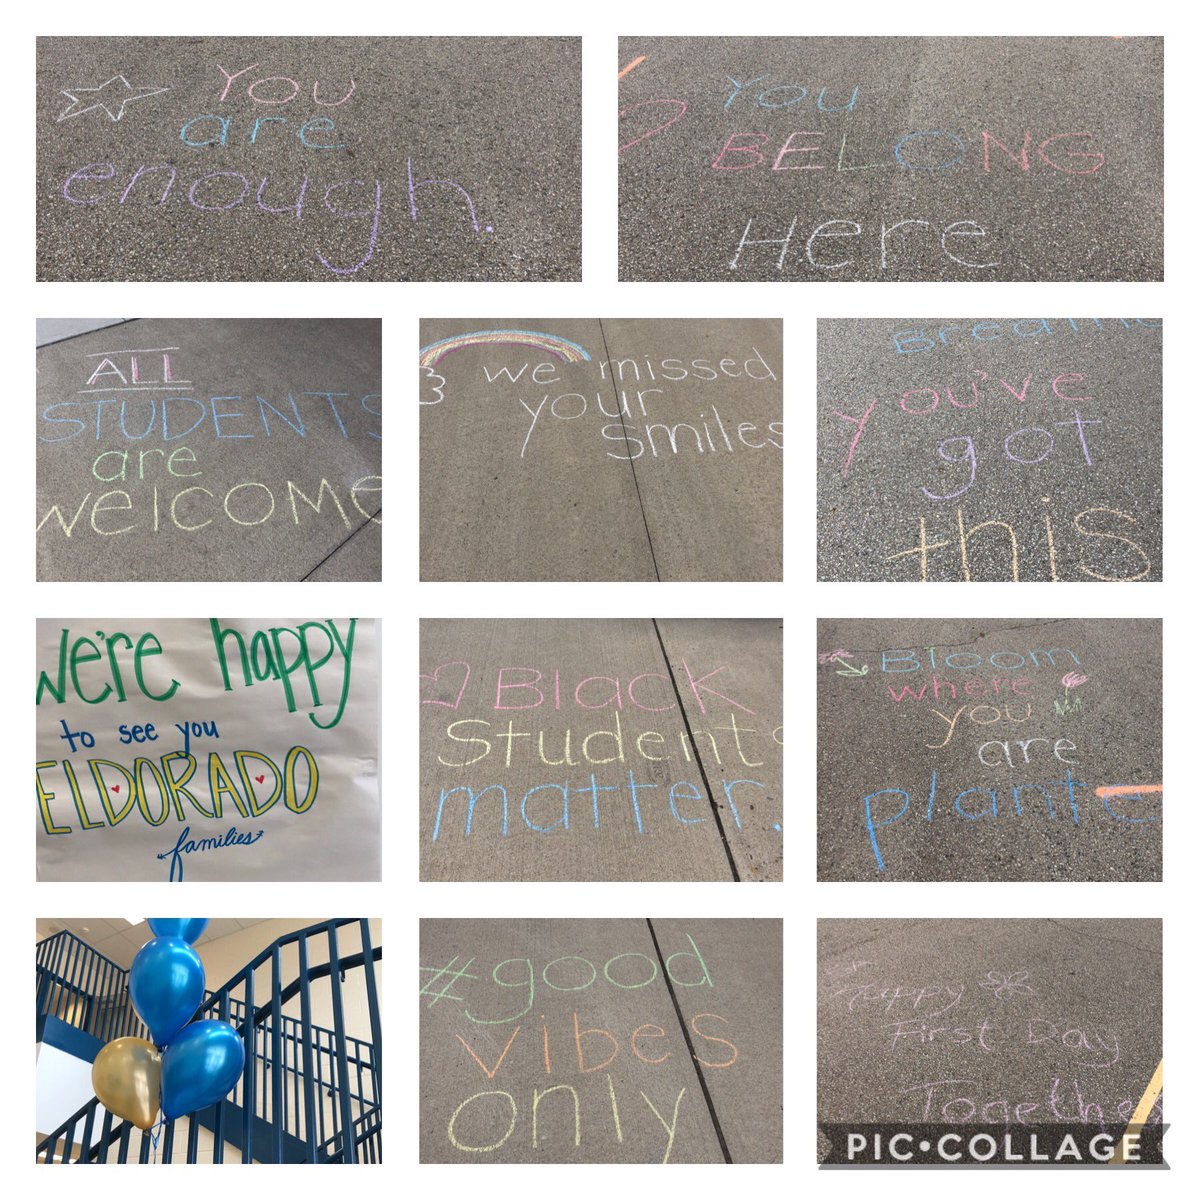 You
are
enough.
You
BELONG
Here
ALL
STUDENTS
are
WELCOME
we missed
your
smiles
Breathe
you've
got
this
We're happy
to see you
ELDORADO
families
Black
Students
matter.
Bloom
where
you
are
plante
#good
vibes
only
Happy
First Day
Together
PIC•COLLAGE